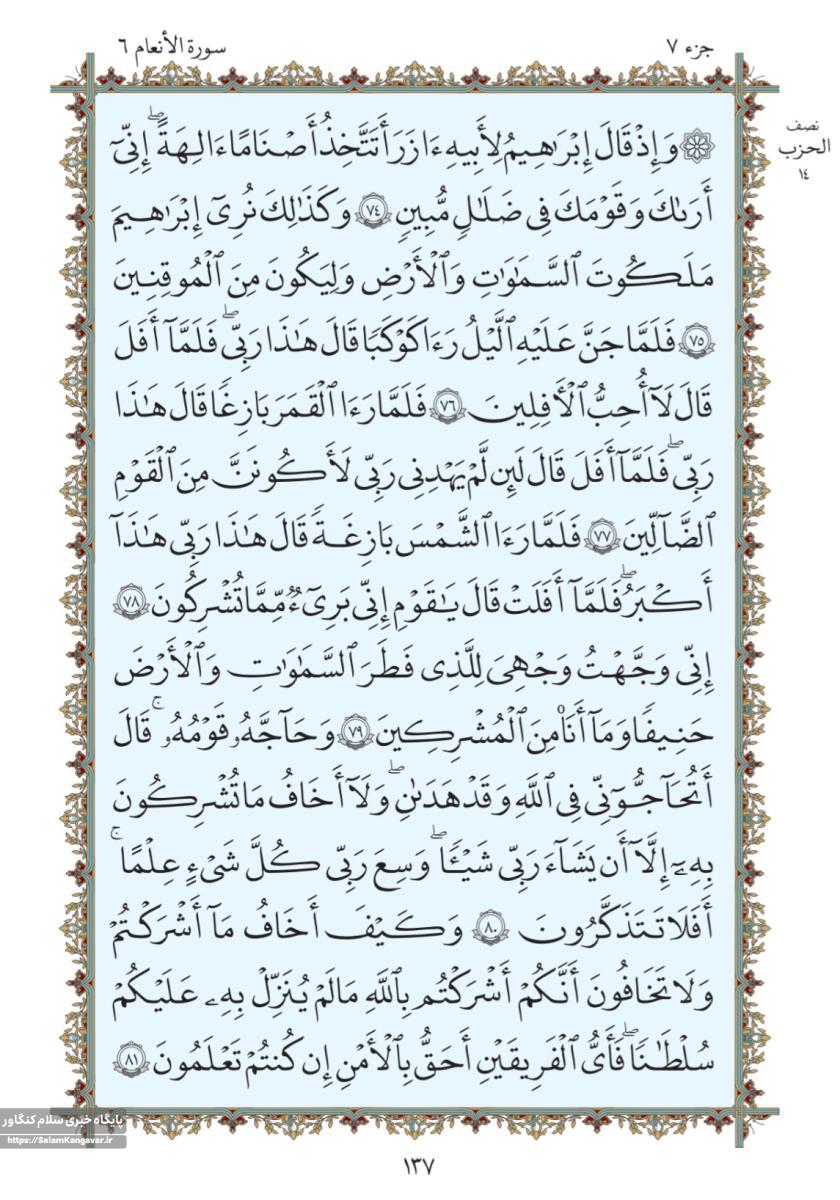 جزء ٧
سورة الأنعام ٦
نصف
الحزب
١٤
۞ وَإِذْ قَالَ إِبْرَٰهِيمُ لِأَبِيهِ ءَازَرَ أَتَتَّخِذُ أَصْنَامًا ءَالِهَةً ۖ إِنِّىٓ
أَرَىٰكَ وَقَوْمَكَ فِى ضَلَٰلٍ مُّبِينٍ ﴿٧٤﴾ وَكَذَٰلِكَ نُرِىٓ إِبْرَٰهِيمَ
مَلَكُوتَ ٱلسَّمَٰوَٰتِ وَٱلْأَرْضِ وَلِيَكُونَ مِنَ ٱلْمُوقِنِينَ
﴿٧٥﴾ فَلَمَّا جَنَّ عَلَيْهِ ٱلَّيْلُ رَءَا كَوْكَبًا قَالَ هَٰذَا رَبِّى ۖ فَلَمَّآ أَفَلَ
قَالَ لَآ أُحِبُّ ٱلْأَفِلِينَ ﴿٧٦﴾ فَلَمَّا رَءَا ٱلْقَمَرَ بَازِغًا قَالَ هَٰذَا
رَبِّى ۖ فَلَمَّآ أَفَلَ قَالَ لَئِن لَّمْ يَهْدِنِى رَبِّى لَأَكُونَنَّ مِنَ ٱلْقَوْمِ
ٱلضَّآلِّينَ ﴿٧٧﴾ فَلَمَّا رَءَا ٱلشَّمْسَ بَازِغَةً قَالَ هَٰذَا رَبِّى هَٰذَآ
أَكْبَرُ ۖ فَلَمَّآ أَفَلَتْ قَالَ يَٰقَوْمِ إِنِّى بَرِىٓءٌ مِّمَّا تُشْرِكُونَ ﴿٧٨﴾
إِنِّى وَجَّهْتُ وَجْهِىَ لِلَّذِى فَطَرَ ٱلسَّمَٰوَٰتِ وَٱلْأَرْضَ
حَنِيفًا وَمَآ أَنَا۠ مِنَ ٱلْمُشْرِكِينَ ﴿٧٩﴾ وَحَآجَّهُۥ قَوْمُهُۥ ۚ قَالَ
أَتُحَٰٓجُّوٓنِّى فِى ٱللَّهِ وَقَدْ هَدَىٰنِ ۖ وَلَآ أَخَافُ مَا تُشْرِكُونَ
بِهِۦٓ إِلَّآ أَن يَشَآءَ رَبِّى شَيْـًٔا ۖ وَسِعَ رَبِّى كُلَّ شَىْءٍ عِلْمًا ۚ
أَفَلَا تَتَذَكَّرُونَ ﴿٨٠﴾ وَكَيْفَ أَخَافُ مَآ أَشْرَكْتُمْ
وَلَا تَخَافُونَ أَنَّكُمْ أَشْرَكْتُم بِٱللَّهِ مَا لَمْ يُنَزِّلْ بِهِۦ عَلَيْكُمْ
سُلْطَٰنًا ۚ فَأَىُّ ٱلْفَرِيقَيْنِ أَحَقُّ بِٱلْأَمْنِ إِن كُنتُمْ تَعْلَمُونَ ﴿٨١﴾
پایگاه خبری سلام کنگاور
https://SalamKangavar.ir
١٣٧